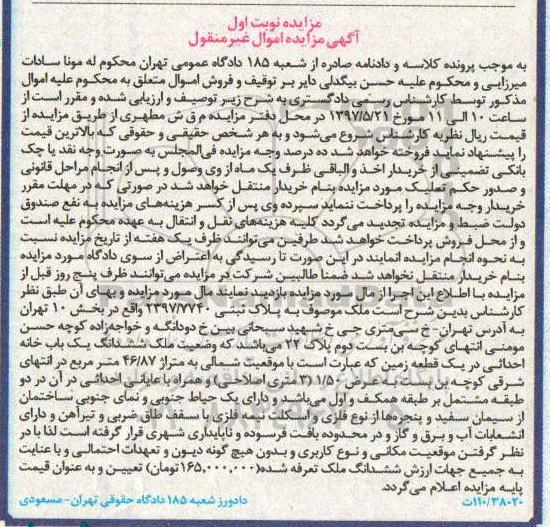 مزایده نوبت اول
آگهی مزایده اموال غیرمنقول
به موجب پرونده کلاسه و دادنامه صادره از شعبه ۱۸۵ دادگاه عمومی تهران محکوم له مونا سادات
میرزایی و محکوم علیه حسن بیگدلی دایر بر توقیف و فروش اموال متعلق به محکوم علیه اموال
مذکور توسط کارشناس رسمی دادگستری به شرح زیر توصیف و ارزیابی شده و مقرر است از
ساعت ۱۰ الی ۱۱ مورخ ۱۳۹۷/۵/۲۱ در محل دفتر مزایده م ق ش مطهری از طریق مزایده از
قیمت ریال نظریه کارشناس شروع می‌شود و به هر شخص حقیقی و حقوقی که بالاترین قیمت
را پیشنهاد نماید فروخته خواهد شد ده درصد وجه مزایده فی‌المجلس به صورت وجه نقد یا چک
بانکی تضمینی از خریدار اخذ و الباقی ظرف یک ماه از وی وصول و پس از انجام مراحل قانونی
و صدور حکم تملیک مورد مزایده بنام خریدار منتقل خواهد شد در صورتی که در مهلت مقرر
خریدار وجه مزایده را پرداخت ننماید سپرده وی پس از کسر هزینه‌های مزایده به نفع صندوق
دولت ضبط و مزایده تجدید می‌گردد کلیه هزینه‌های نقل و انتقال به عهده محکوم علیه است
و از محل فروش پرداخت خواهد شد طرفین می‌توانند ظرف یک هفته از تاریخ مزایده نسبت
به نحوه انجام مزایده انمایند در این صورت تا رسیدگی به اعتراض از سوی دادگاه مورد مزایده
بنام خریدار منتقل نخواهد شد ضمنا طالبین شرکت در مزایده می‌توانند ظرف پنج روز قبل از
مزایده با اطلاع این اجرا از مال مورد مزایده بازدید نمایند مال مورد مزایده و بهای آن طبق نظر
کارشناس بدین شرح است ملک موصوف به پلاک ثبتی ۲۳۹۷/۷۷۴۰ واقع در بخش ۱۰ تهران
به آدرس تهران-خ سی‌متری جی خ شهید سبحانی بین خ دودانگه و خواجه‌زاده کوچه حسن
مومنی انتهای کوچه بن بست دوم پلاک ۲۲ می‌باشد که وضعیت ملک ششدانگ یک باب خانه
احداثی در یک قطعه زمین که عبارت است با موقعیت شمالی به متراژ ۴۶/۸۷ متر مربع در انتهای
شرقی کوچه بن بست به عرض ۱/۵۰ (۳ متری اصلاحی) و همراه با عیانی احداثی در آن در دو
طبقه مشتمل بر طبقه همکف و اول می‌باشد و دارای یک حیاط جنوبی و نمای جنوبی ساختمان
از سیمان سفید و پنجره‌ها از نوع فلزی و اسکلت نیمه فلزی با سقف طاق ضربی و تیرآهن و دارای
انشعابات آب و برق و گاز و در محدوده بافت فرسوده و ناپایداری شهری قرار گرفته است لذا با در
نظر گرفتن موقعیت مکانی و نوع کاربری و بدون هیچ گونه دیون و تعهدات احتمالی و با عنایت
به جمیع جهات ارزش ششدانگ ملک تعرفه شده (۱۶۵,۰۰۰,۰۰۰ تومان) تعیین و به عنوان قیمت
پایه مزایده اعلام می‌گردد.
۱۱۰/۳۸۰۲۰ت دادورز شعبه ۱۸۵ دادگاه حقوقی تهران-مسعودی